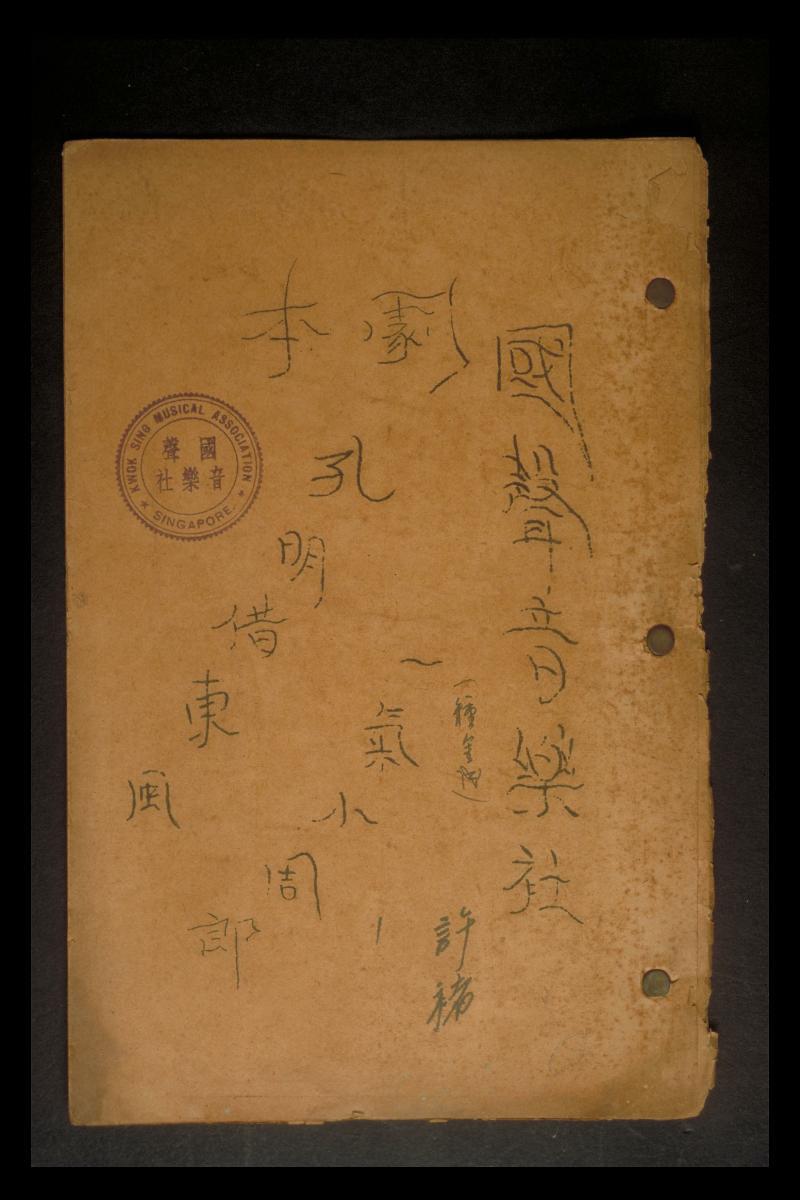 國聲音樂社
劇本
孔明借東風
一氣小周郎
許褚
KWOK SING MUSICAL ASSOCIATION
國聲
音樂社
★ SINGAPORE. ★